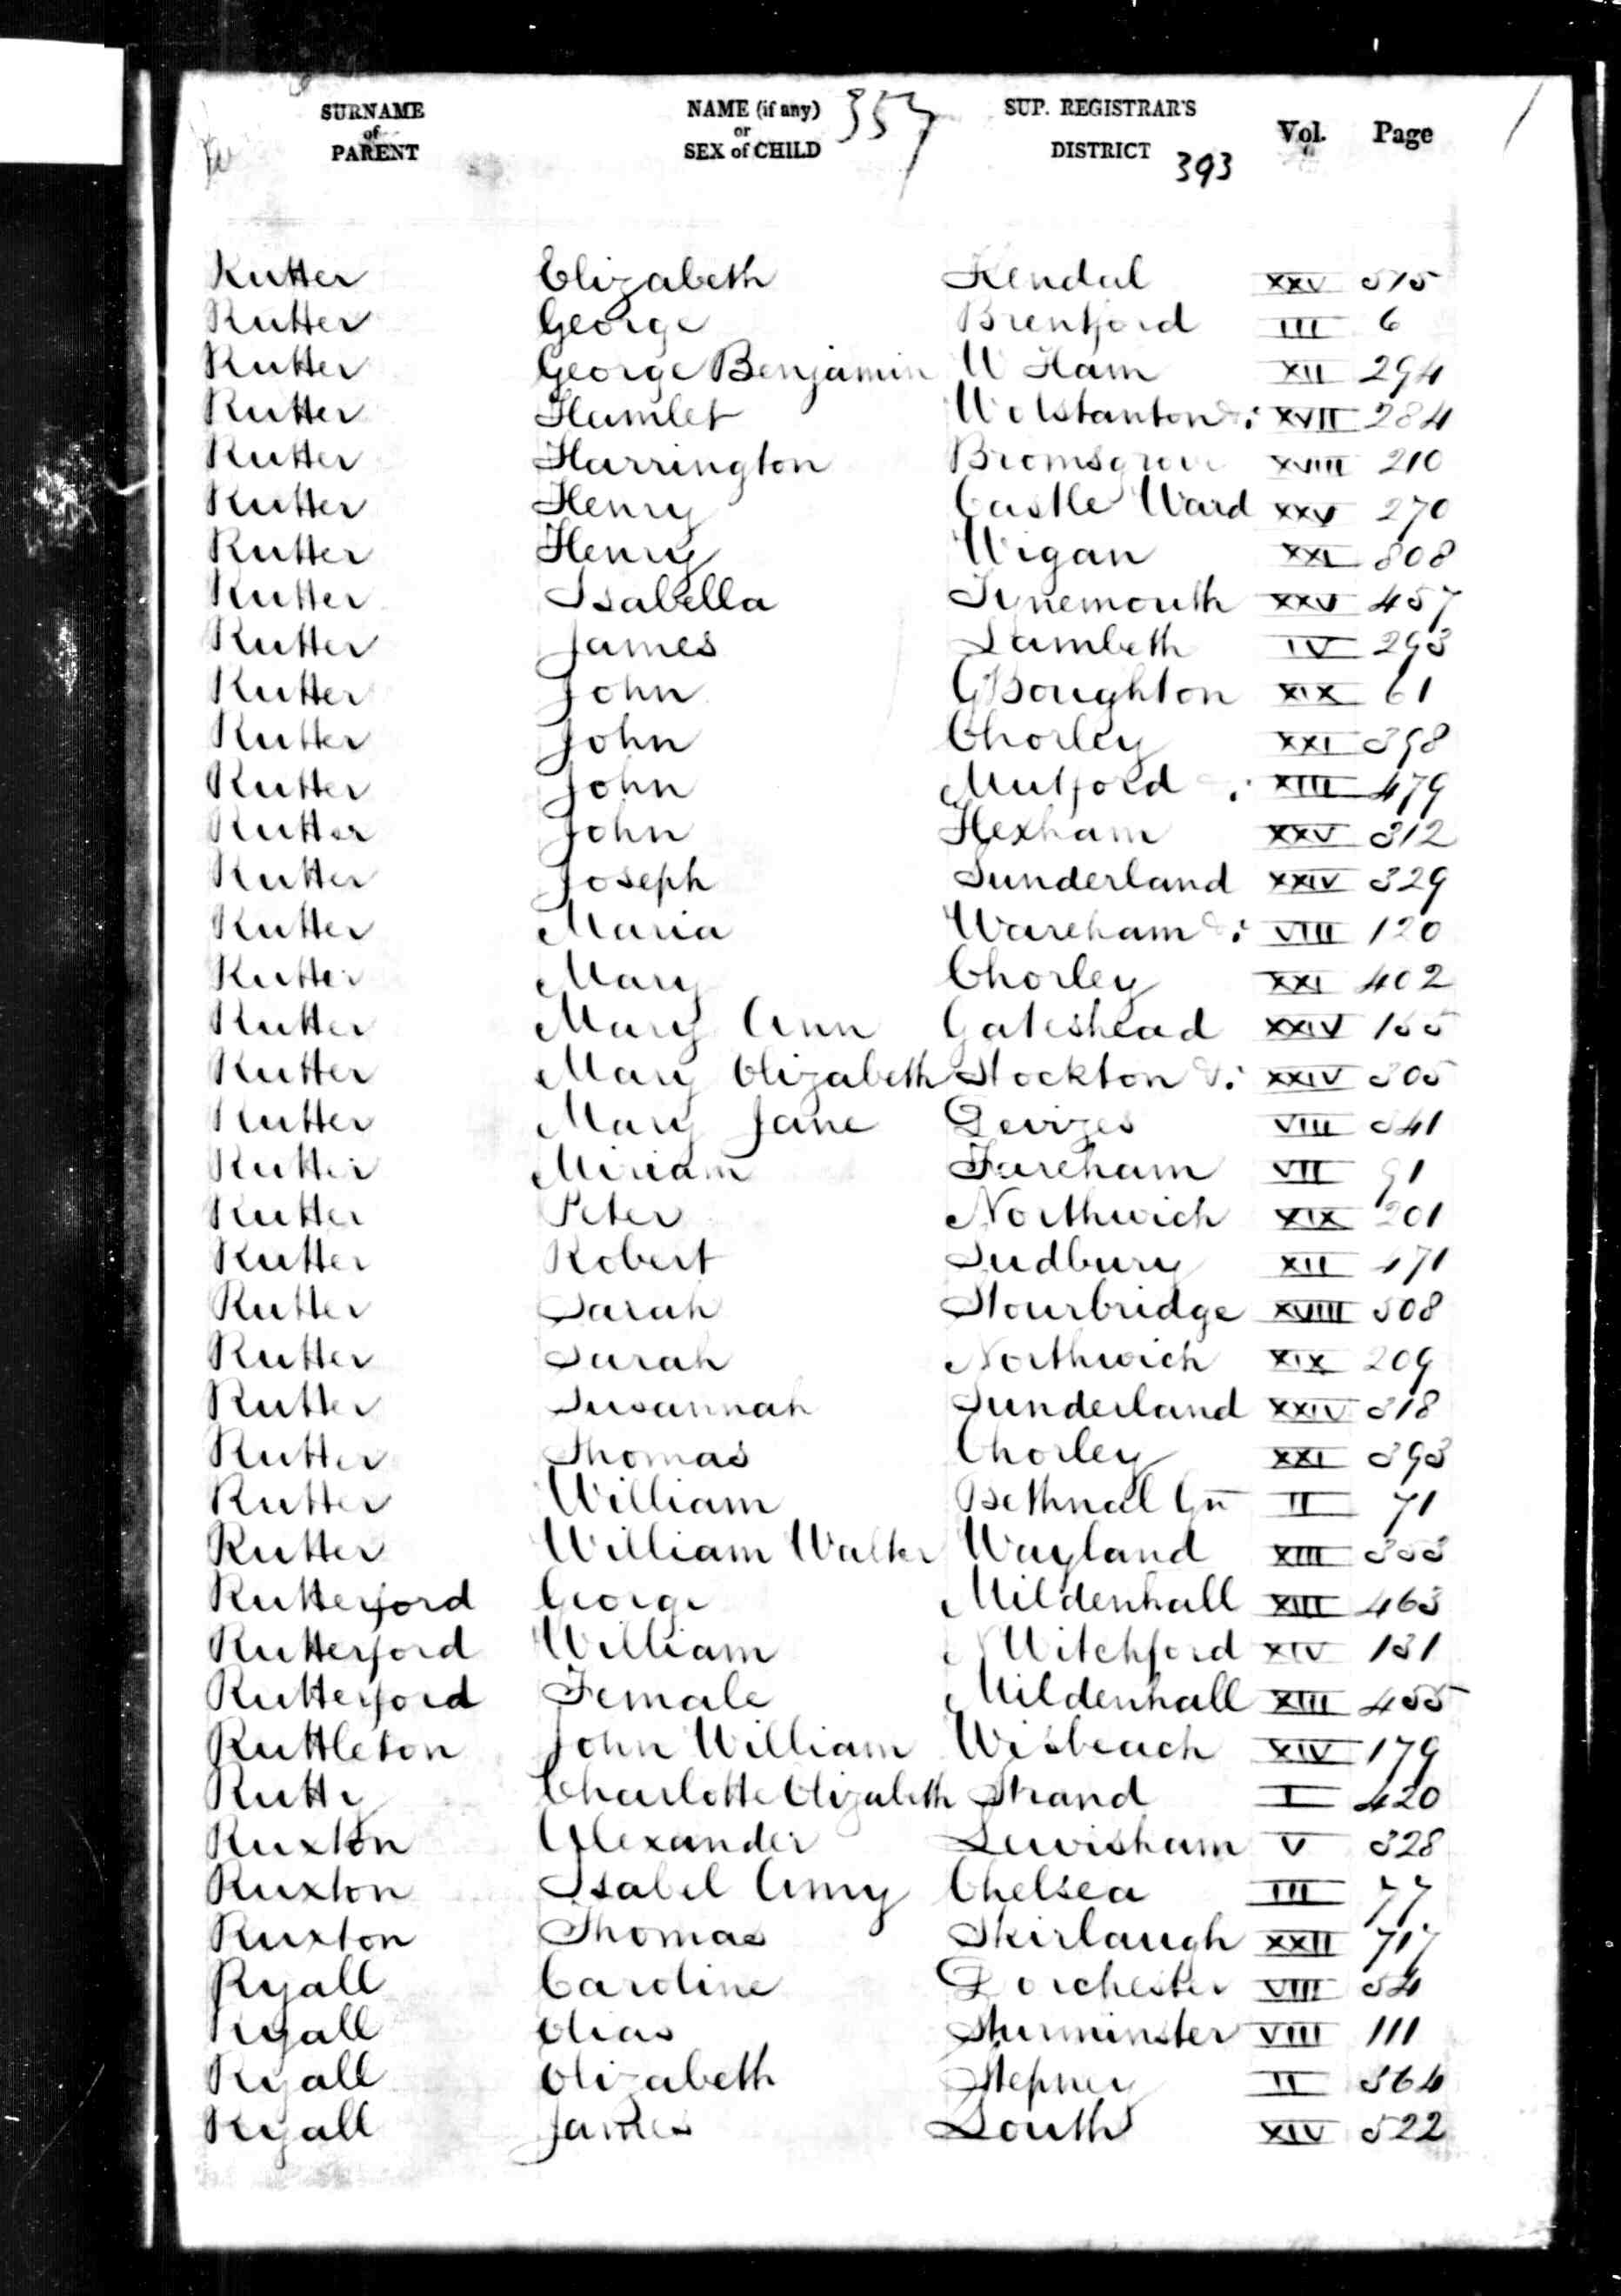 SURNAME of PARENT NAME (if any) or SEX of CHILD 357 SUP. REGISTRAR'S DISTRICT 393 Vol. Page
Rutter Elizabeth Kendal XXV 515
Rutter George Brentford III 6
Rutter George Benjamin W Ham XII 294
Rutter Hamlet Wolstanton &: XVII 284
Rutter Harrington Bromsgrove XVIII 210
Rutter Henry Castle Ward XXV 270
Rutter Henry Wigan XXI 808
Rutter Isabella Tynemouth XXV 457
Rutter James Lambeth IV 293
Rutter John G Boughton XIX 61
Rutter John Chorley XXI 398
Rutter John Mutford &: XIII 479
Rutter John Hexham XXV 312
Rutter Joseph Sunderland XXIV 329
Rutter Maria Wareham &: VIII 120
Rutter Mary Chorley XXI 402
Rutter Mary Ann Gateshead XXIV
Rutter Mary Elizabeth Stockton &: XXIV 305
Rutter Mary Jane Devizes VIII 341
Rutter Miriam Fareham VII 91
Rutter Peter Northwich XIX 201
Rutter Robert Sudbury XII 471
Rutter Sarah Stourbridge XVIII 508
Rutter Sarah Northwich XIX 209
Rutter Susannah Sunderland XXIV 318
Rutter Thomas Chorley XXI 393
Rutter William Bethnal Gn II 71
Rutter William Walter Wayland XIII
Rutterford George Mildenhall XIII 463
Rutterford William N Witchford XIV 131
Rutterford Female Mildenhall XIII 455
Ruttleton John William Wisbeach XIV 179
Rutty Charlotte Elizabeth Strand I 420
Ruxton Alexander Lewisham V 328
Ruxton Isabel Amy Chelsea III 77
Ruxton Thomas Skirlaugh XXII 717
Ryall Caroline Dorchester VIII 54
Ryall Elias Sturminster VIII 111
Ryall Elizabeth Stepney II 364
Ryall James Louth XIV 522